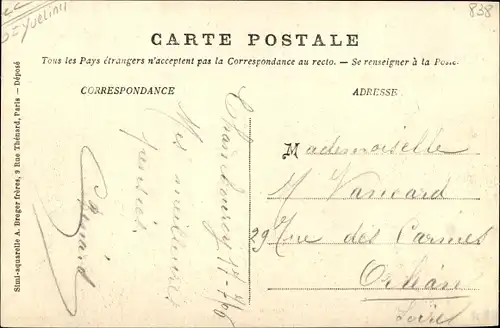 838
Yvelin
CARTE POSTALE
Tous les Pays étrangers n'acceptent pas la Correspondance au recto. — Se renseigner à la Poste.
CORRESPONDANCE
ADRESSE
Simi-aquarelle A. Breger frères, 9 Rue Thénard, Paris — Déposé
Mes meilleures
pensées
Mademoiselle
M Vancard
29 Rue des Carmes
Orléans
Loiret